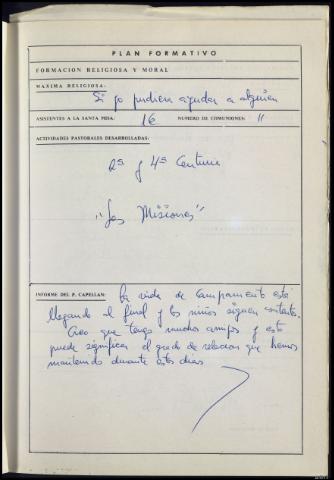 PLAN FORMATIVO
FORMACION RELIGIOSA Y MORAL
MAXIMA RELIGIOSA:
Si yo pudiera ayudar a alguien
ASISTENTES A LA SANTA MISA: 16 NUMERO DE COMUNIONES: 11
ACTIVIDADES PASTORALES DESARROLLADAS:
2ª y 4ª Centuria
"Las Misiones"
INFORME DEL P. CAPELLAN: La vida de Campamento está
llegando al final y los niños siguen contentos.
Creo que tengo muchos amigos y esto
puede significar el grado de relación que hemos
mantenido durante estos días